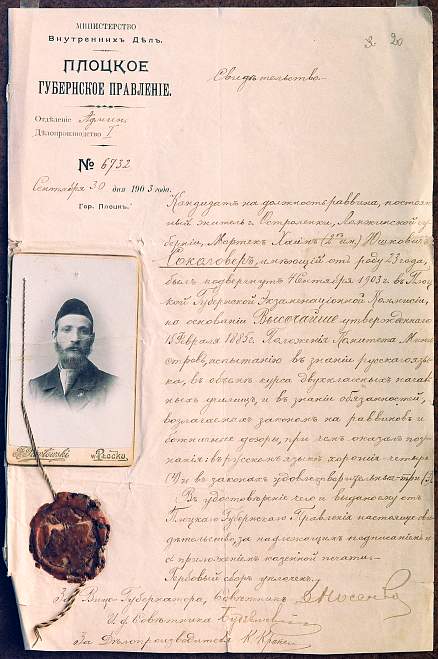 МИНИСТЕРСТВО
Внутреннихъ Дѣлъ.
ПЛОЦКОЕ
ГУБЕРНСКОЕ ПРАВЛЕНІЕ.
Отдѣленіе Админ.
Дѣлопроизводство I
№ 6732
Сентября 30 дня 1903 года.
Гор. Плоцкъ.
20
Свидѣтельство.
Кандидатъ на должность раввина, постоян-
ный житель г. Остроленки, Ломжинской гу-
берніи, Мортек Хаимъ (2хъ им) Юшковичъ
имѣющій отъ роду 23 года,
былъ подвергнутъ 4 Сентября 1903 г. въ Плоц-
кой Губернской Экзаменаціонной Коммисіи,
на основаніи Высочайше утвержденнаго
15 Февраля 1885 г. Положенія Комитета Мини-
стровъ, испытанію въ знаніи русскаго язы-
ка, въ объемѣ курса двухклассныхъ началь-
ныхъ училищъ, и въ знаніи обязанностей,
возлагаемыхъ закономъ на раввиновъ и
божничные дозоры, при чемъ оказалъ поз-
нанія: въ русскомъ языкѣ хорошія-четыре
(4) и въ законахъ удовлетворительныя-три (3).
Въ удостовѣреніе чего и выдано ему отъ
Плоцкаго Губернскаго Правленія настоящее сви-
дѣтельство, за надлежащимъ подписаніемъ и
съ приложеніемъ казенной печати.
Гербовый сборъ уплоченъ.
За Вице-Губернатора, Совѣтникъ
И. д. Совѣтника
За Дѣлопроизводителя К.
w Płocku.